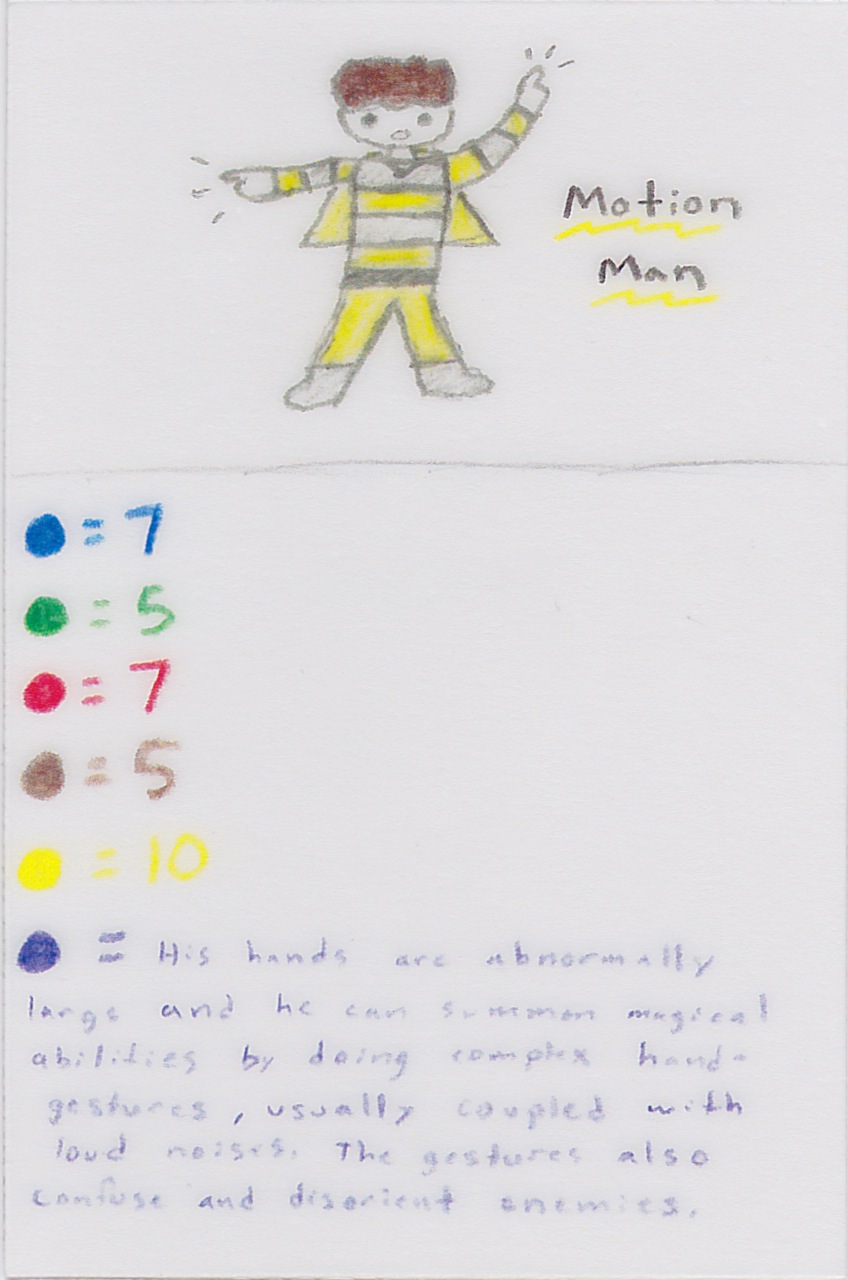 Motion
Man
= 7
= 5
= 7
= 5
= 10
= His hands are abnormally
large and he can summon magical
abilities by doing complex hand-
gestures, usually coupled with
loud noises. The gestures also
confuse and disorient enemies.